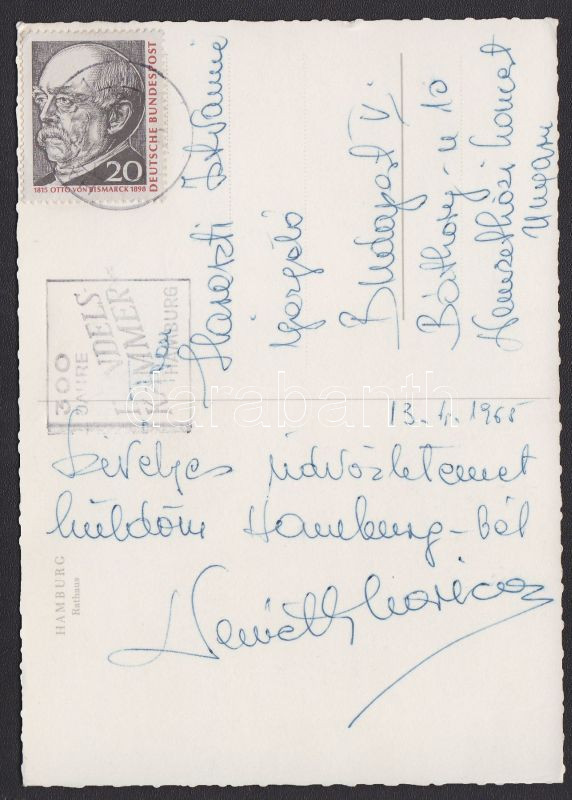 DEUTSCHE BUNDESPOST
20
1815 OTTO VON BISMARCK 1898
300
JAHRE
HANDELS
KAMMER
HAMBURG
Haraszti Istvánné
igazgató
Budapest V.
Báthory u 10
Nemzetközi Koncert
Ungarn
13. 4. 1965
Szívélyes üdvözletemet
küldöm Hamburg-ból
Németh Marica
HAMBURG
Rathaus
darabanth